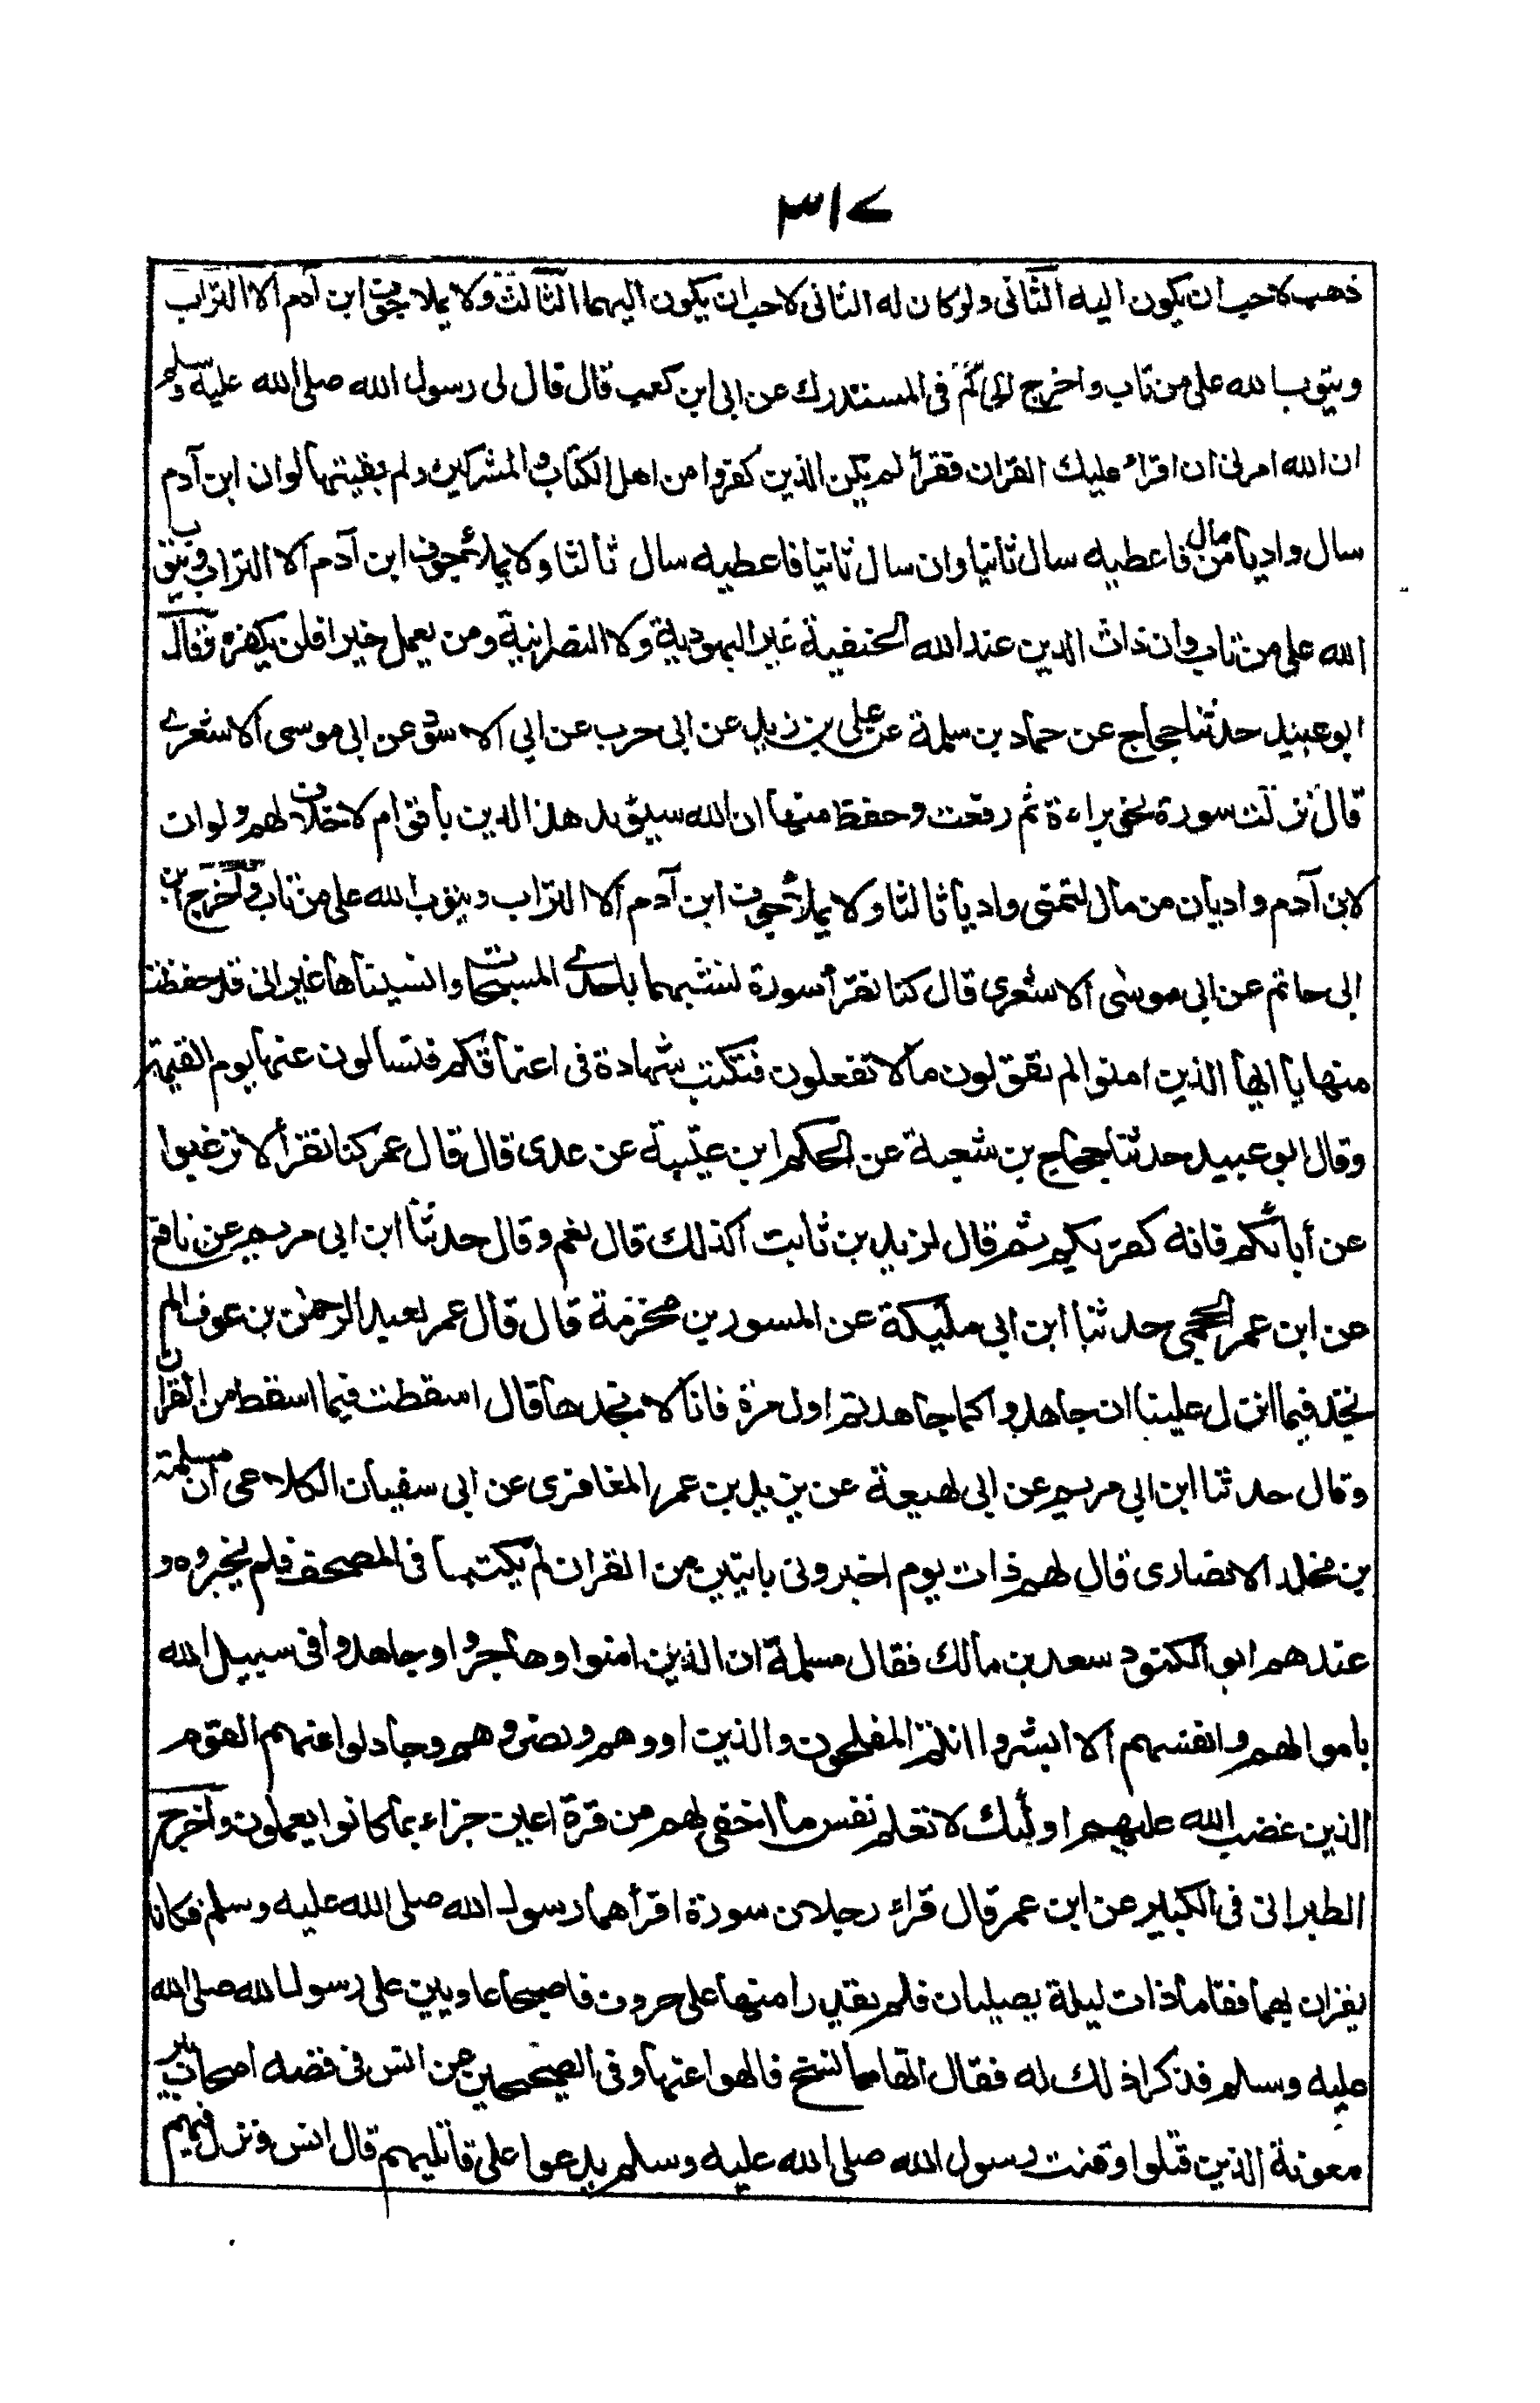 ٣١٧
ذهب لاحب ان يكون اليه الثانى ولو كان له الثانى لاحب ان يكون اليهما الثالث ولا يملا جوف ابن آدم الا التراب
ويتوب الله على من تاب واخرج الحاكم فى المستدرك عن ابى ابن كعب قال قال لى رسول الله صلى الله عليه وسلم
ان الله امرنى ان اقراء عليك القران فقرأ لم يكن الذين كفروا من اهل الكتاب والمشركين ولم بقيتها لو ان ابن آدم
سال واديا من مال فاعطيه سال ثانيا وان سال ثانيا فاعطيه سال ثالثا ولا يملاء جوف ابن آدم الا التراب ويتوب
الله على من تاب وان ذات الدين عند الله الحنفية غير اليهودية ولا النصرانية ومن يعمل خيرا فلن يكفره وقال
ابو عبيد حدثنا حجاج عن حماد بن سلمة عن على بن زيد عن ابى حرب عن ابي الاسود عن ابى موسى الاشعرى
قال نزلت سورة نحو براءة ثم رفعت وحفظ منها ان الله سيؤيد هذا الدين باقوام لا خلاق لهم ولو ان
لابن آدم واديان من مال لتمنى واديا ثالثا ولا يملاء جوف ابن آدم الا التراب ويتوب الله على من تاب واخرج ابن
ابى حاتم عن ابى موسى الاشعرى قال كنا نقرأ سورة لنشبهها باحدى المسبحات وانسيناها غير انى قد حفظت
منها يا ايها الذين امنوا لم تقولون ما لا تفعلون فتكتب شهادة فى اعناقكم فتسالون عنها يوم القيمة
وقال ابو عبيد حدثنا حجاج بن شعبة عن الحكم ابن عتيبة عن عدى قال قال عمر كنا نقرأ لا ترغبوا
عن أبائكم فانه كفر بكم ثم قال لزيد بن ثابت اكذلك قال نعم وقال حدثنا ابن ابى مريم عن نافع
عن ابن عمر الجمحى حدثنا ابن ابى مليكة عن المسور بن مخرمة قال قال عمر لعبد الرحمن بن عوف الم
تجد فيما انزل علينا ان جاهدوا كما جاهدتم اول مرة فانا لا نجدها قال اسقطت فيما اسقط من القران
وقال حدثنا ابن ابى مريم عن ابى لهيعة عن يزيد بن عمر المغافرى عن ابى سفيان الكلاعى ان مسلمة
بن مخلد الانصارى قال لهم ذات يوم اخبرونى بايتين من القران لم يكتبها فى المصحف فلم يخبروه و
عندهم ابو الكنود سعد بن مالك فقال مسلمة ان الذين امنوا وهاجروا وجاهدوا فى سبيل الله
باموالهم وانفسهم الا ابشروا انتم المفلحون والذين اووهم ونصروهم وجادلوا عنهم القوم
الذين غضب الله عليهم اولئك لا تعلم نفس ما اخفى لهم من قرة اعين جزاء بما كانوا يعملون واخرج
الطبرانى فى الكبير عن ابن عمر قال قراء رجلان سورة اقرأهما رسول الله صلى الله عليه وسلم فكانا
يقران بهما فقاما ذات ليلة يصليان فلم يقدرا منها على حرون فاصبحا عاديين على رسول الله صلى الله
عليه وسلم فذكرا ذلك له فقال انها مما نسخ فالهوا عنها وفى الصحيحين عن انس فى قصه اصحاب بئر
معونة الذين قتلوا وقنت رسول الله صلى الله عليه وسلم يدعوا على قاتليهم قال انس ونزل فيهم